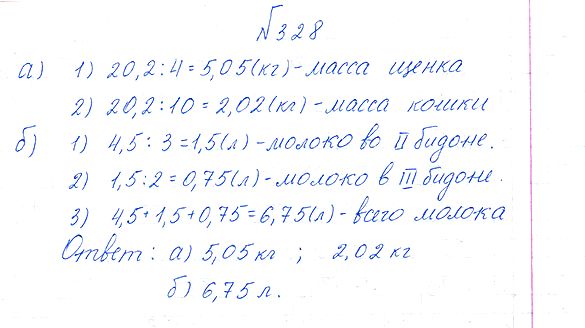 №328
а) 1) 20,2:4=5,05(кг)-масса щенка
2) 20,2:10=2,02(кг)-масса кошки
б) 1) 4,5:3=1,5(л)-молоко во II бидоне.
2) 1,5:2=0,75(л)-молоко в III бидоне.
3) 4,5+1,5+0,75=6,75(л)-всего молока
Ответ: а) 5,05кг ; 2,02 кг
б) 6,75 л.